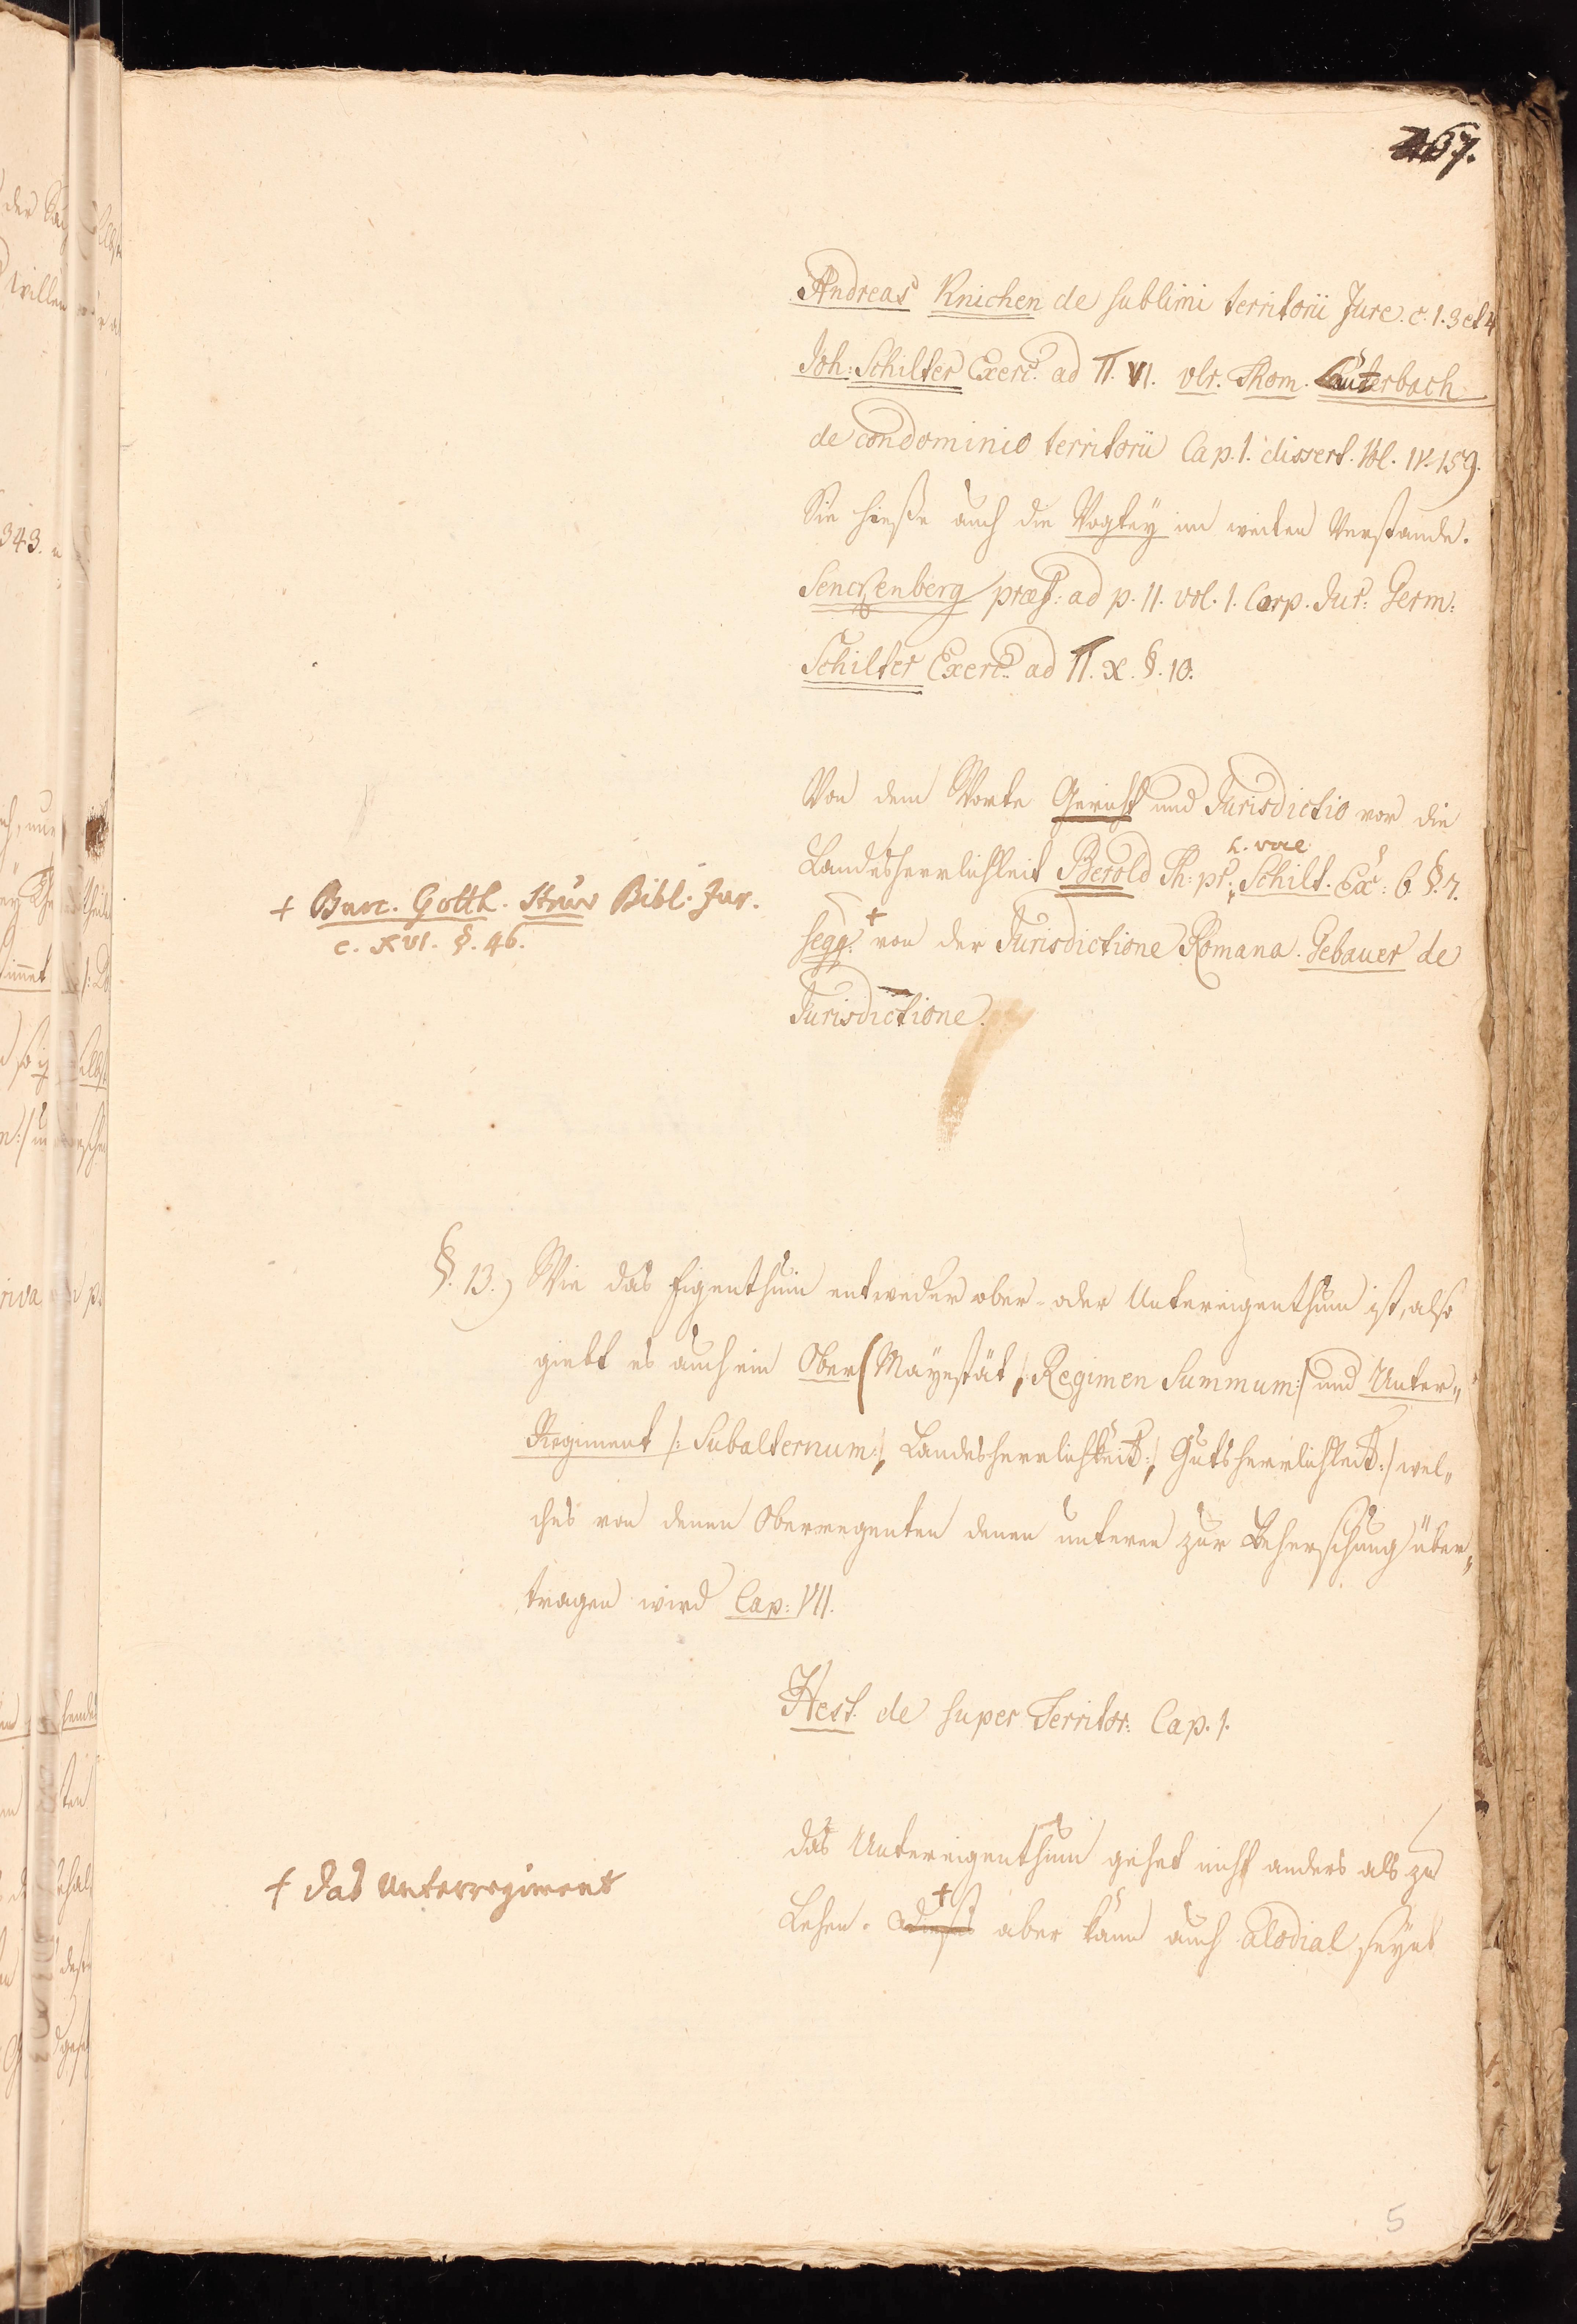 467.
Andreas Knichen de sublimi territorii Jure. c. 1. 3 et 4
Joh: Schilter Exerc. ad π. VI. vlr. Thom. Lauterbach
de condominio territorii Cap. 1. dissert. Vol. IV. 159.
Sie hieße auch die Vogtey im weiten Verstande.
Senckenberg præf: ad p. 11. vol. 1. Corp. Jur: Germ:
Schilter Exerc. ad π. X. §. 10.
Von dem Worte Gericht und Jurisdictio vor die
h. voce
Landesherrlichkeit Berold Th: pr: Schilt. Ex: 6. §. 7.
seqq: + von der Jurisdictione Romana. Gebauer de
Jurisdictione.
+ Burc. Gotth. Struv Bibl. Jur.
c. XVI. §. 46.
§. 13.) Wie das Eigenthum entweder ober- oder Untereigenthum ist, also
giebt es auch ein Ober (Mayestät, Regimen Summum:/ und Unter„
Regiment /: Subalternum:/, Landesherrlichkeit:/, Gutsherrlichkeit:/ wel„
ches von denen Oberregenten denen unteren zur Beherschung über„
tragen wird Cap: VII.
Hest. de super Territor: Cap. 1.
das Untereigenthum gehet nicht anders als zu
Lehen. Dieses + aber kann auch alodial seyn
+ das Unterregiment
5